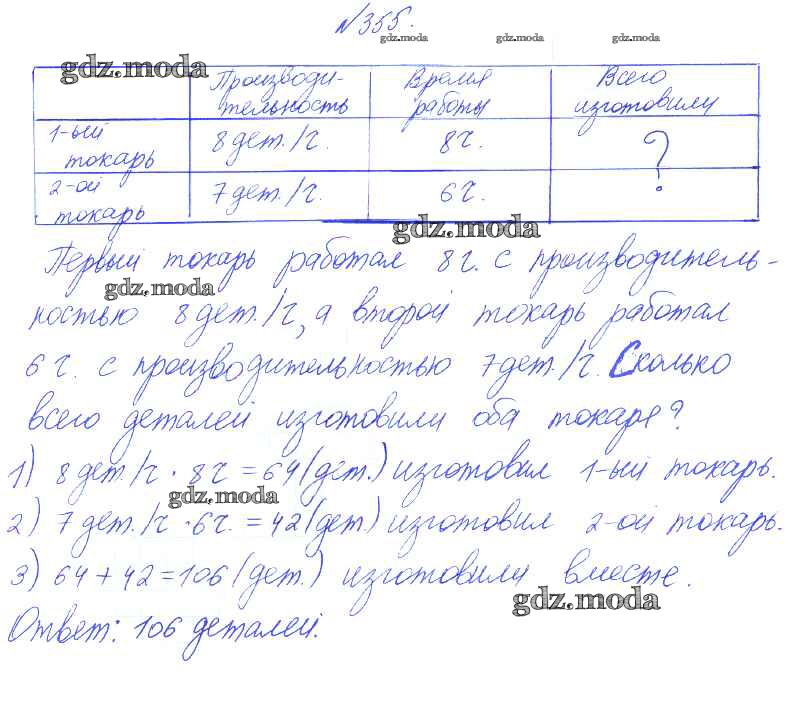 №355.
gdz.moda gdz.moda gdz.moda
gdz.moda
Производи- Время Всего
тельность работы изготовили
1-ый
токарь 8 дет./ч. 8 ч. ?
2-ой
токарь 7 дет./ч. 6 ч.
gdz.moda
Первый токарь работал 8 ч. с производитель-
gdz.moda
ностью 8 дет./ч, а второй токарь работал
6 ч. с производительностью 7 дет./ч. Сколько
всего деталей изготовили оба токаря?
1) 8 дет./ч · 8 ч = 64 (дет.) изготовил 1-ый токарь.
gdz.moda
2) 7 дет./ч · 6 ч. = 42 (дет) изготовил 2-ой токарь.
3) 64 + 42 = 106 (дет.) изготовили вместе.
gdz.moda
Ответ: 106 деталей.